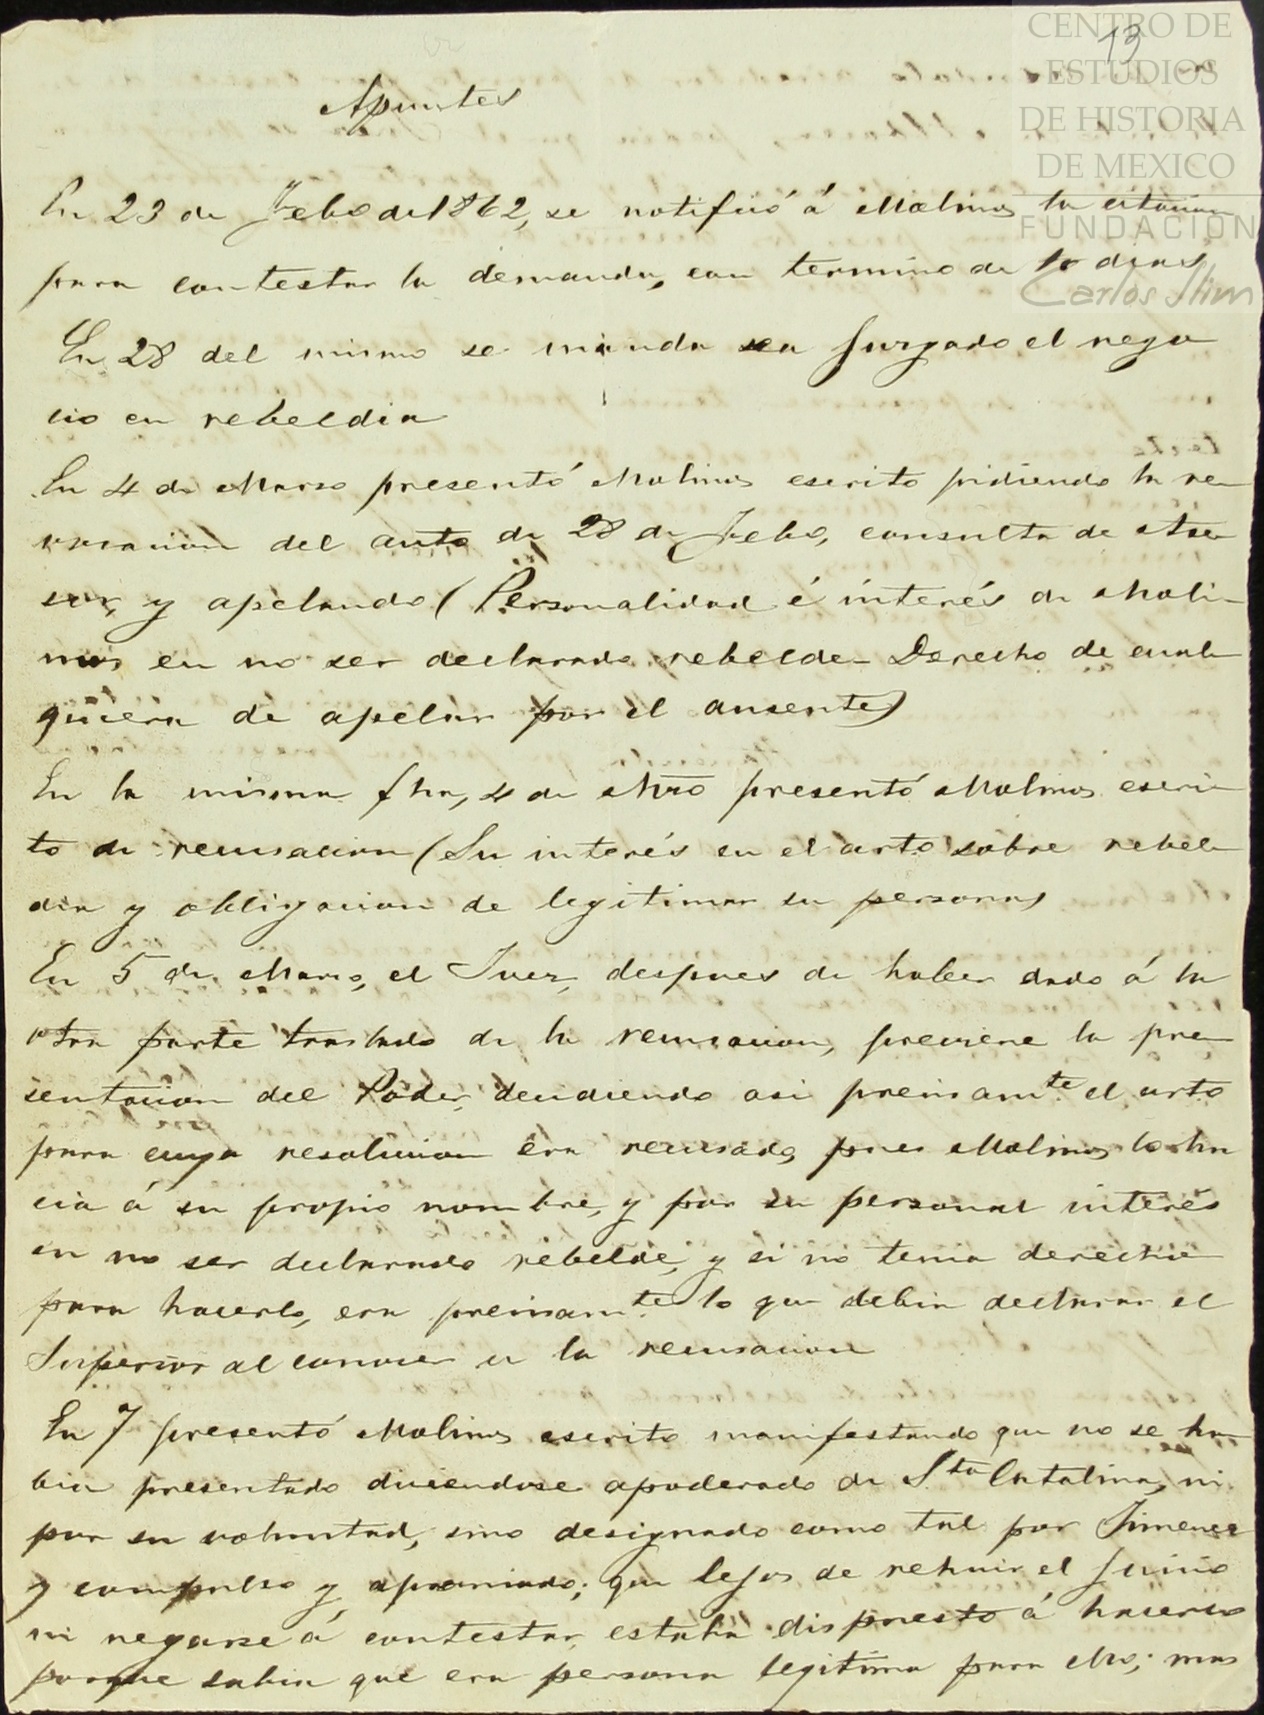 CENTRO DE
ESTUDIOS
DE HISTORIA
DE MEXICO
FUNDACIÓN
Carlos Slim
13
Apuntes
En 23 de Febo de 1862, se notificó á Molinos la citacion
para contestar la demanda, con termino de 10 dias
En 28 del mismo se manda sea Juzgado el nego
cio en rebeldia
En 4 de Marzo presentó Molinos escrito pidiendo la re
vocacion del auto de 28 de Febo, consulta de Ase
sor, y apelando (Personalidad é interés de Moli-
nos en no ser declarado rebelde - Derecho de cual
quiera de apelar por el ausente)
En la misma fha, 4 de Mzo presentó Molinos escri
to de recusacion (Su interés en el arto sobre rebel
dia y obligacion de legitimar su persona)
En 5 de Marzo, el Juez, despues de haber dado á la
otra parte traslado de la recusacion, previene la pre
sentacion del Poder, decidiendo asi precisamte el arto
para cuya resolucion era recusado, pues Molinos lo ha
cia á su propio nombre, y por su personal interés
en no ser declarado rebelde, y si no tenia derecho
para hacerlo, era precisamte lo que debia declarar el
Superior al conocer en la recusacion
En 7 presentó Molinos escrito manifestando que no se ha
bia presentado diciendose apoderado de Sta Catalina, ni
por su voluntad, sino designado como tal por Jimenez
y compulso y apremiado; que lejos de rehuir el juicio
ni negarse á contestar, estaba dispuesto á hacerlo
porque sabia que era persona legitima para ello; mas